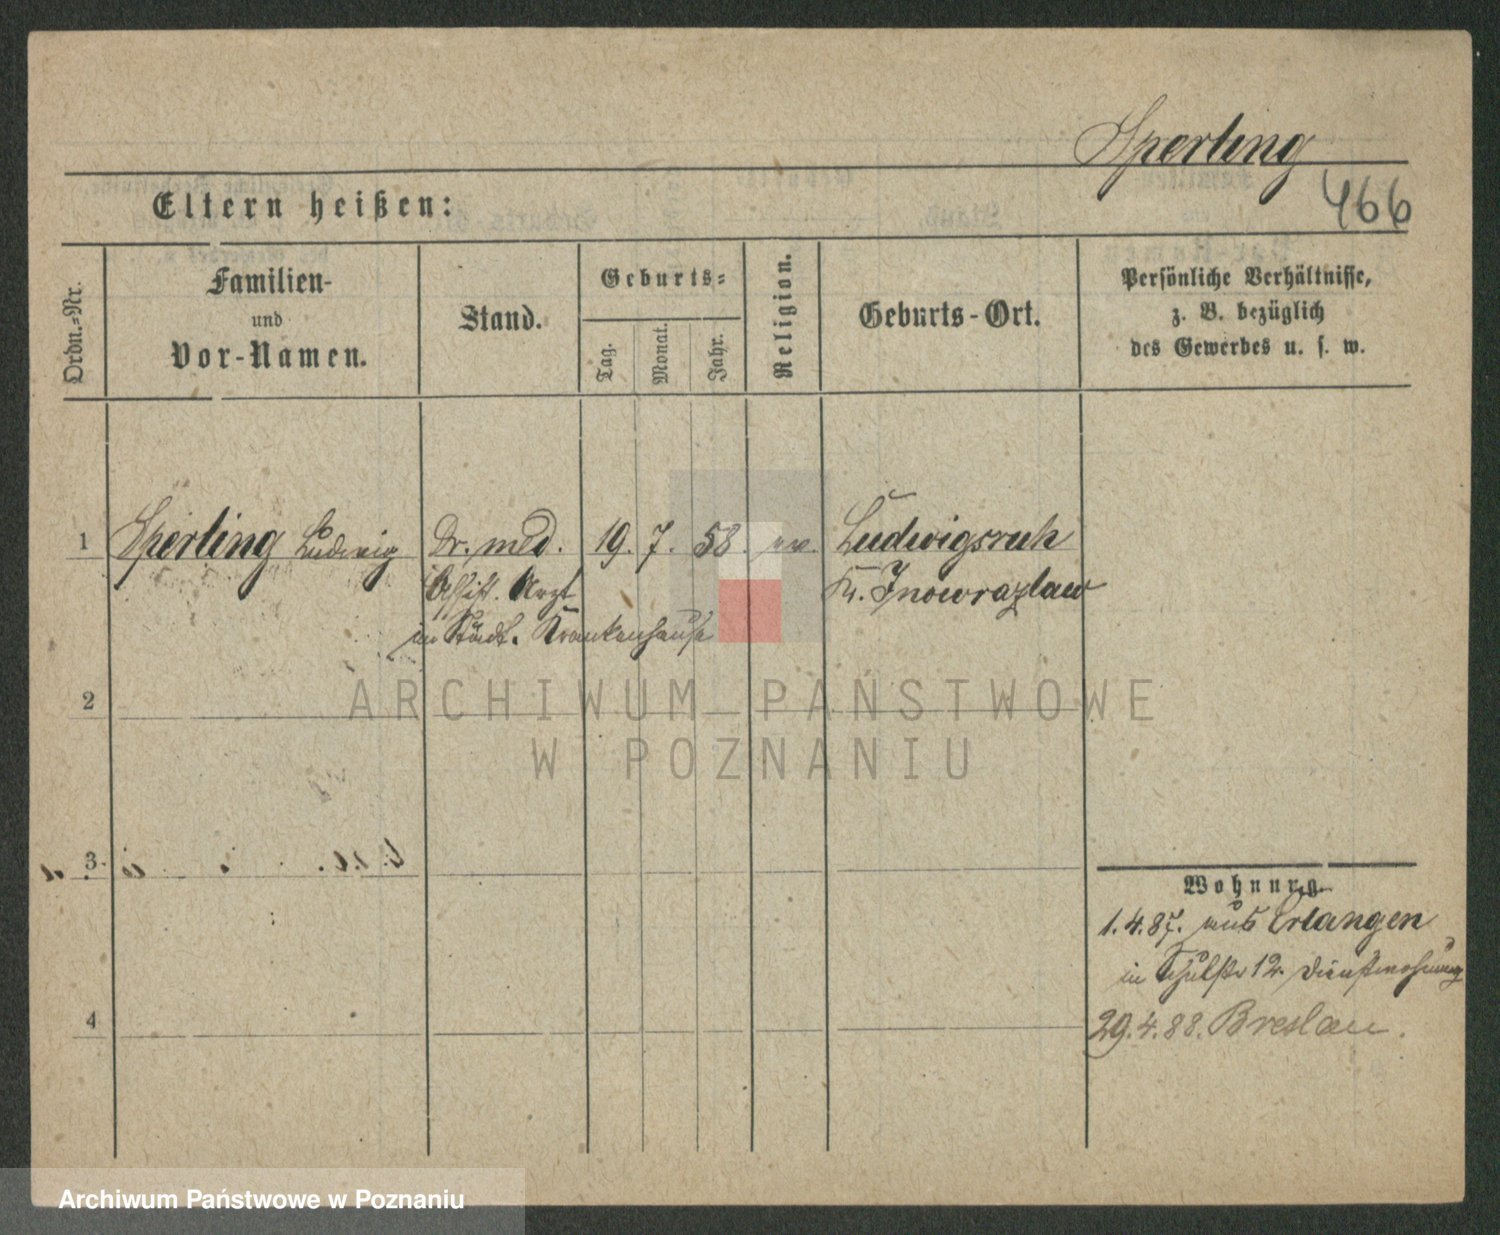 Sperling
466
Eltern heißen:
Ordn.-Nr.
Familien-
und
Vor-Namen.
Stand.
Geburts-
Tag.
Monat.
Jahr.
Religion.
Geburts-Ort.
Persönliche Verhältnisse,
z. B. bezüglich
des Gewerbes u. s. w.
1 Sperling Ludwig Dr. med. 19. 7. 58. ev. Ludwigsruh
Assist. Arzt Kr. Inowrazlaw
im Städt. Krankenhause
2
ARCHIWUM PAŃSTWOWE
W POZNANIU
3
Wohnung.
1.4.87. aus Erlangen
in Schulstr 12. Dienstwohnung
4
29.4.88. Breslau.
Archiwum Państwowe w Poznaniu